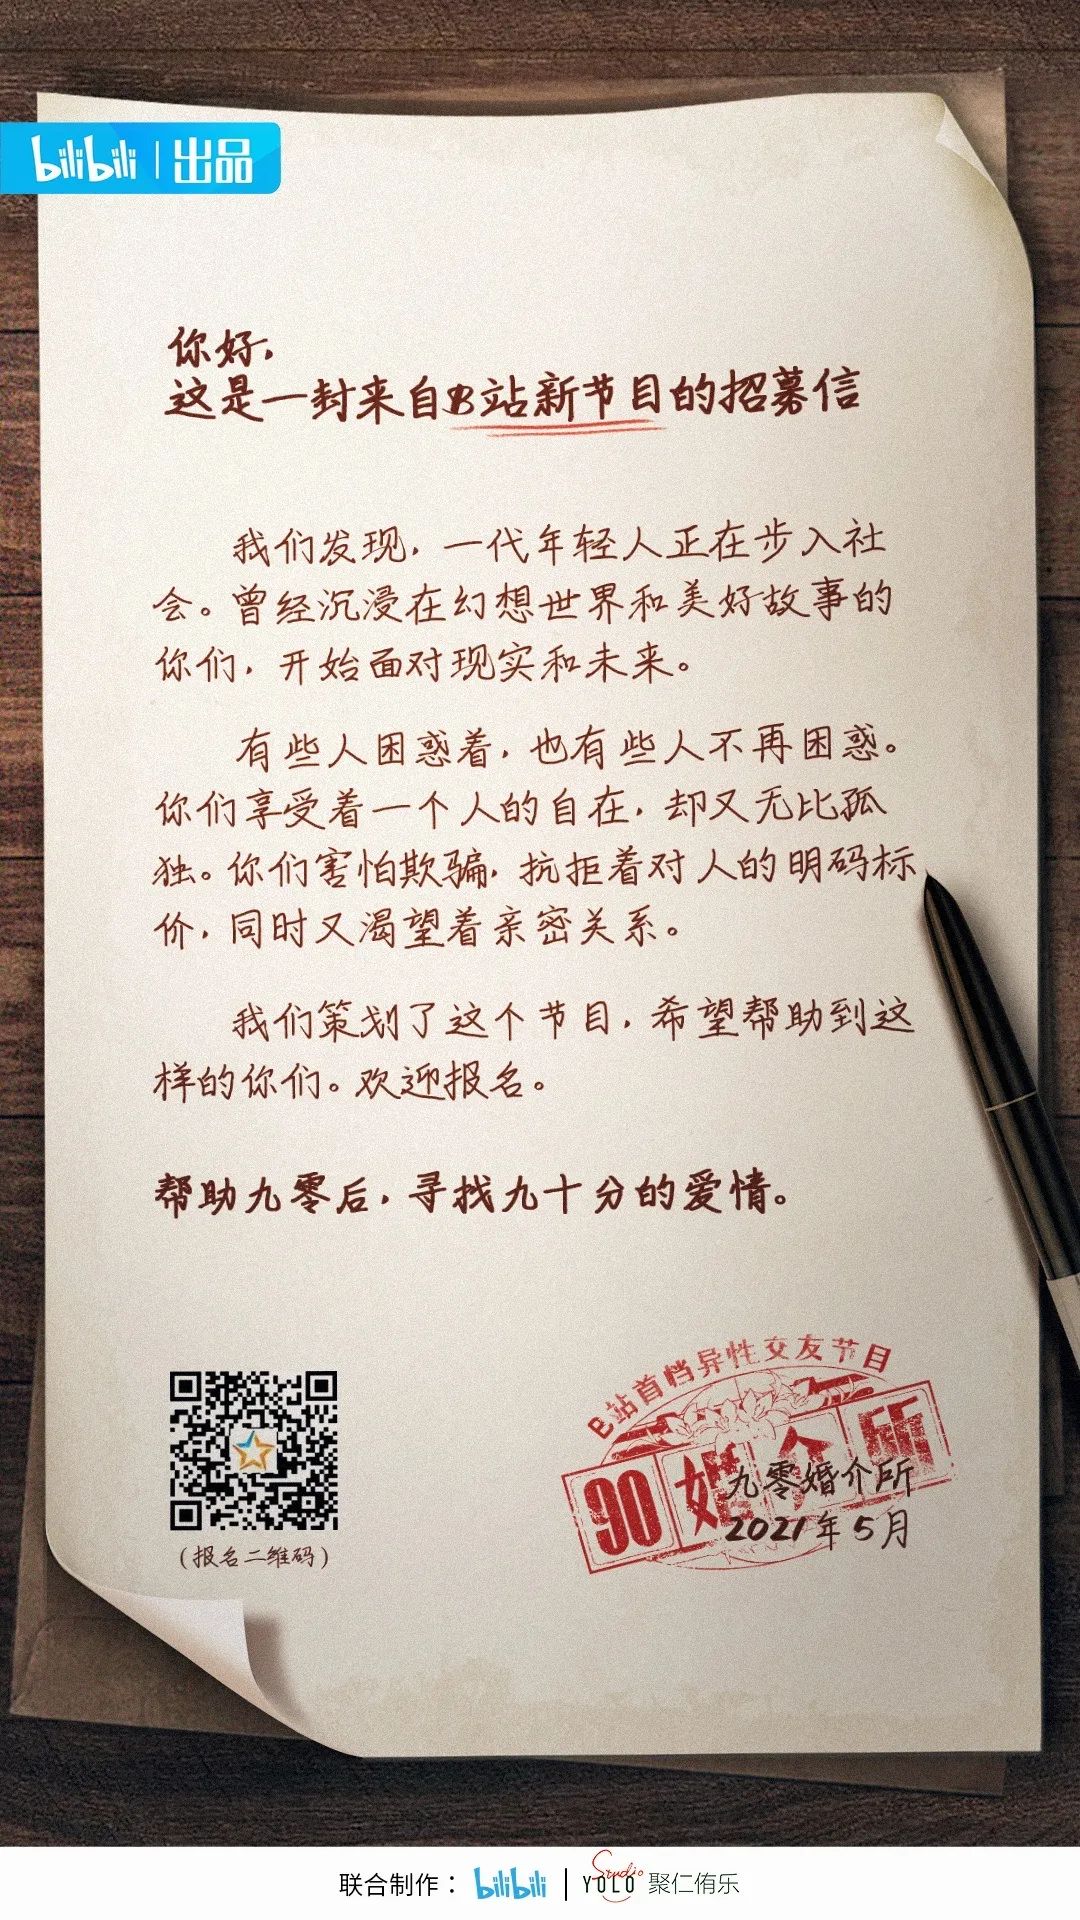 bilibili | 出品
你好，
这是一封来自B站新节目的招募信
我们发现，一代年轻人正在步入社
会。曾经沉浸在幻想世界和美好故事的
你们，开始面对现实和未来。
有些人困惑着，也有些人不再困惑。
你们享受着一个人的自在，却又无比孤
独。你们害怕欺骗，抗拒着对人的明码标
价，同时又渴望着亲密关系。
我们策划了这个节目，希望帮助到这
样的你们。欢迎报名。
帮助九零后，寻找九十分的爱情。
B站首档异性交友节目
90婚介所
九零婚介所
2021年5月
（报名二维码）
联合制作： bilibili | Studio YOLO 聚仁侑乐